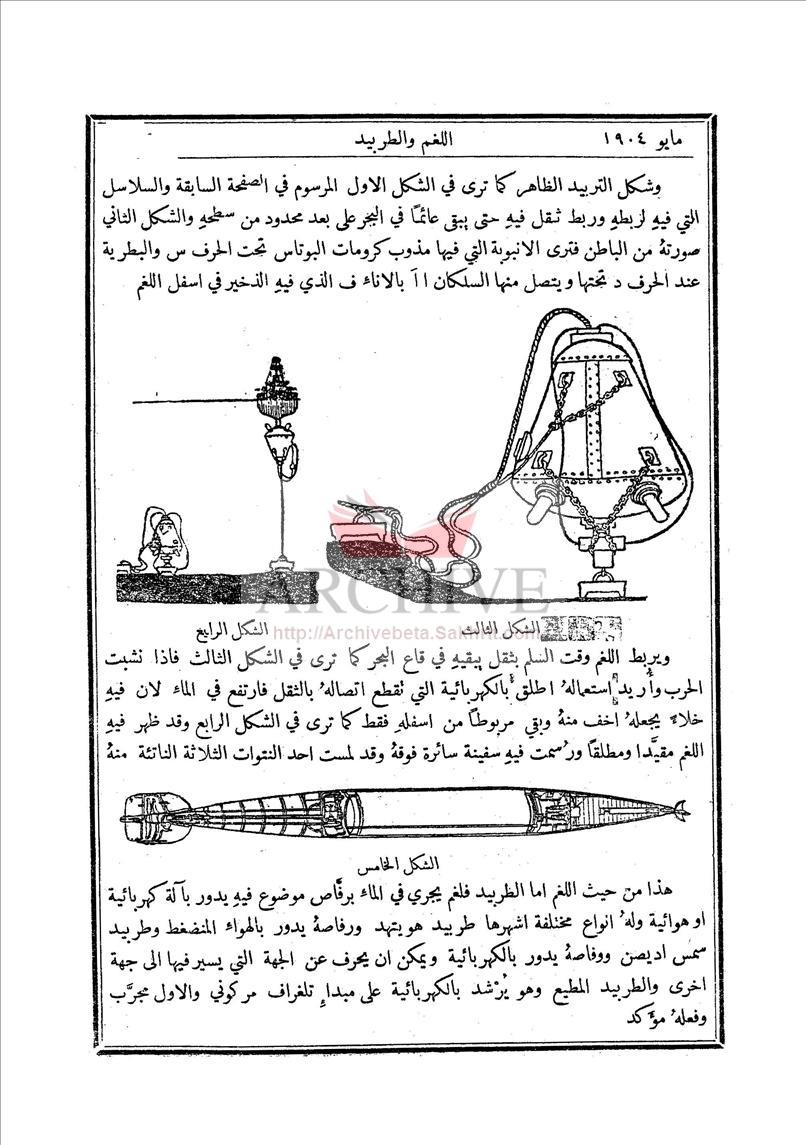 مايو ١٩٠٤
اللغم والطربيد
وشكل التربيد الظاهر كما ترى في الشكل الاول المرسوم في الصفحة السابقة والسلاسل
التي فيهِ لربطهِ وربط ثقل فيهِ حتى يبقى عائمًا في البحر على بعد محدود من سطحهِ والشكل الثاني
صورتهُ من الباطن فترى الانبوبة التي فيها مذوب كرومات البوتاس تحت الحرف س والبطرية
عند الحرف د تحتها ويتصل منها السلكان ا اَ بالاناء ف الذي فيهِ الذخير في اسفل اللغم
ARCHIVE
http://Archivebeta.Sakhrit.com
الشكل الثالث
الشكل الرابع
ويربط اللغم وقت السلم بثقل يبقيهِ في قاع البحر كما ترى في الشكل الثالث فاذا نشبت
الحرب وأُريد استعمالهُ اطلق بالكهربائية التي تقطع اتصالهُ بالثقل فارتفع في الماء لان فيهِ
خلاءً يجعلهُ اخف منهُ وبقي مربوطًا من اسفلهِ فقط كما ترى في الشكل الرابع وقد ظهر فيهِ
اللغم مقيَّدا ومطلقا ورُسمت فيهِ سفينة سائرة فوقهُ وقد لمست احد النتوات الثلاثة الناتئة منهُ
الشكل الخامس
هذا من حيث اللغم اما الطربيد فلغم يجري في الماء برفَّاص موضوع فيهِ يدور بآلة كهربائية
او هوائية ولهُ انواع مختلفة اشهرها طربيد هويتهد ورفاصهُ يدور بالهواء المنضغط وطربيد
سمس اديصن ورفاصهُ يدور بالكهربائية ويمكن ان يحرف عن الجهة التي يسير فيها الى جهة
اخرى والطربيد المطيع وهو يُرْشد بالكهربائية على مبداءِ تلغراف مركوني والاول مجرَّب
وفعلهُ مؤَكد